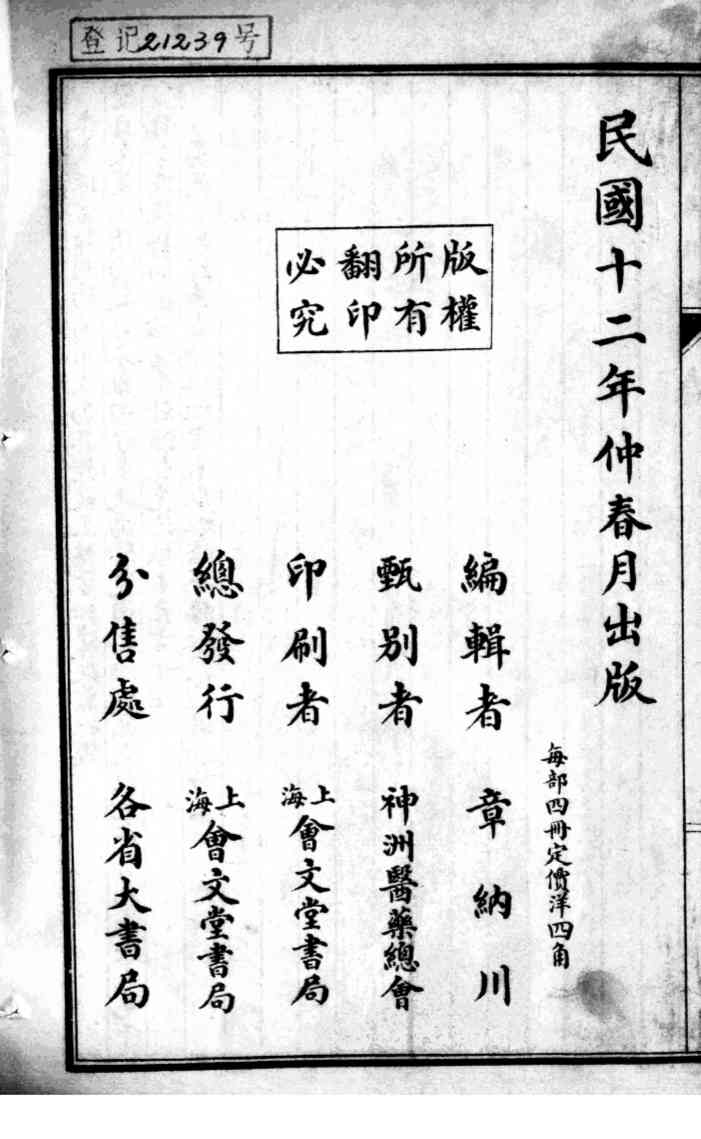 登记21239号
民國十二年仲春月出版
每部四冊定價洋四角
版權
所有
翻印
必究
編輯者 章納川
甄別者 神洲醫藥總會
印刷者 上海會文堂書局
總發行 上海會文堂書局
分售處 各省大書局